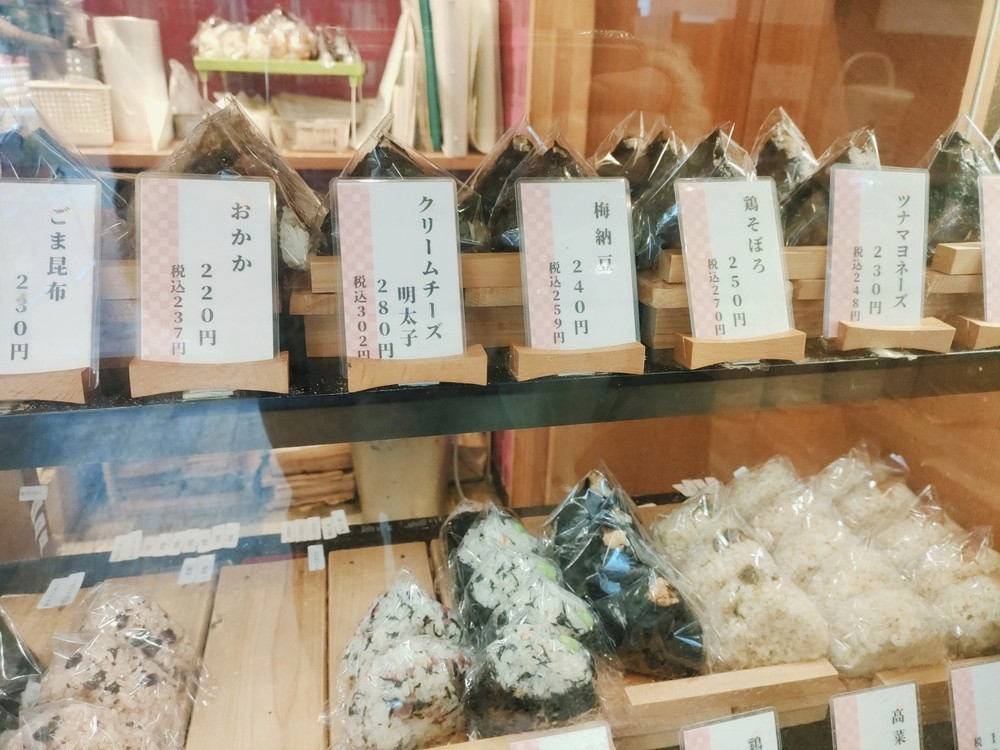 ごま昆布
230円
おかか
220円
税込237円
クリームチーズ
明太子
280円
税込302円
梅納豆
240円
税込259円
鶏そぼろ
250円
税込270円
ツナマヨネーズ
230円
税込248円
鶏
高菜